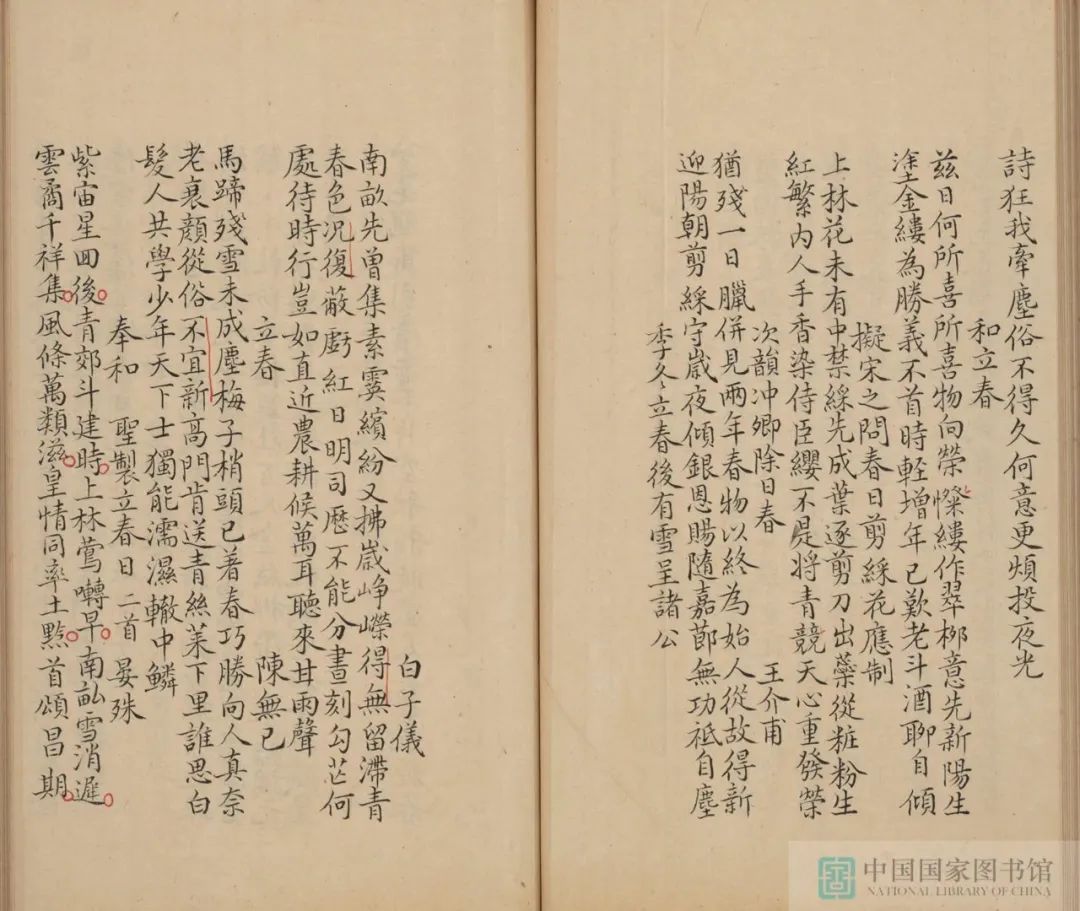 詩狂我牽塵俗不得久何意更煩投夜光
和立春
茲日何所喜所喜物向榮㸑縷作翠柳意先新陽生
塗金縷為勝義不首時軽增年已歎老斗酒聊自傾
擬宋之問春日剪綵花應制
上林花未有中禁綵先成葉逐剪刀出蘂從粧粉生
紅繁內人手香染侍臣纓不是將青競天心重發榮
次韻冲卿除日春
王介甫
猶殘一日臘併見兩年春物以終為始人從故得新
迎陽朝剪綵守歲夜傾銀恩賜隨嘉莭無功祗自塵
季冬立春後有雪呈諸公
白子儀
南畝先曾集素雲繽紛又拂歲峥嶸得無留滯青
春色况復蔽虧紅日明司歷不能分晝刻勾芒何
處待時行豈如直近農耕候萬耳聽來甘雨聲
立春
陳無已
馬蹄殘雪未成塵梅子梢頭已著春巧勝向人真奈
老衰顏從俗不宜新高門肯送青絲菜下里誰思白
髮人共學少年天下士獨能濡濕轍中鱗
奉和
聖製立春日二首
晏殊
紫宙星回後青郊斗建時上林鶯囀早南畝雪消遲
雲矞千祥集風條萬類滋皇情同率土黔首頌昌期
中国国家图书馆
NATIONAL LIBRARY OF CHINA